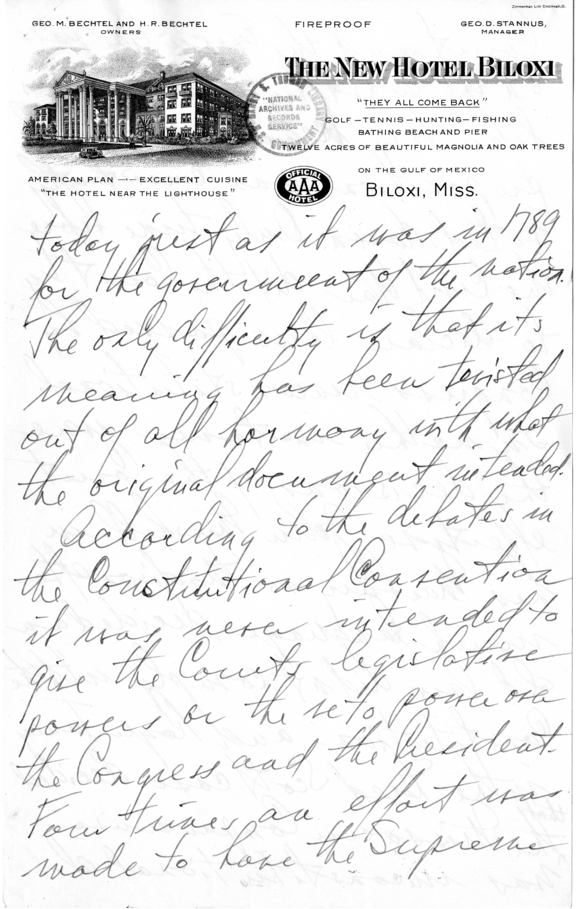 Zimmerman Lith Cincinnati, O.
GEO. M. BECHTEL AND H. R. BECHTEL
OWNERS
FIREPROOF
GEO. D. STANNUS,
MANAGER
THE NEW HOTEL BILOXI
"THEY ALL COME BACK"
GOLF – TENNIS – HUNTING – FISHING
BATHING BEACH AND PIER
TWELVE ACRES OF BEAUTIFUL MAGNOLIA AND OAK TREES
"NATIONAL
ARCHIVES AND
RECORDS
SERVICE"
AMERICAN PLAN — EXCELLENT CUISINE
"THE HOTEL NEAR THE LIGHTHOUSE"
OFFICIAL
AAA
HOTEL
ON THE GULF OF MEXICO
BILOXI, MISS.
today just as it was in 1789
for the government of the nation.
The only difficulty is that its
meaning has been twisted
out of all harmony with what
the original document intended.
According to the debates in
the Constitutional Convention
it was never intended to
give the Courts legislative
powers or the veto power over
the Congress and the President.
Four times an effort was
made to have the Supreme